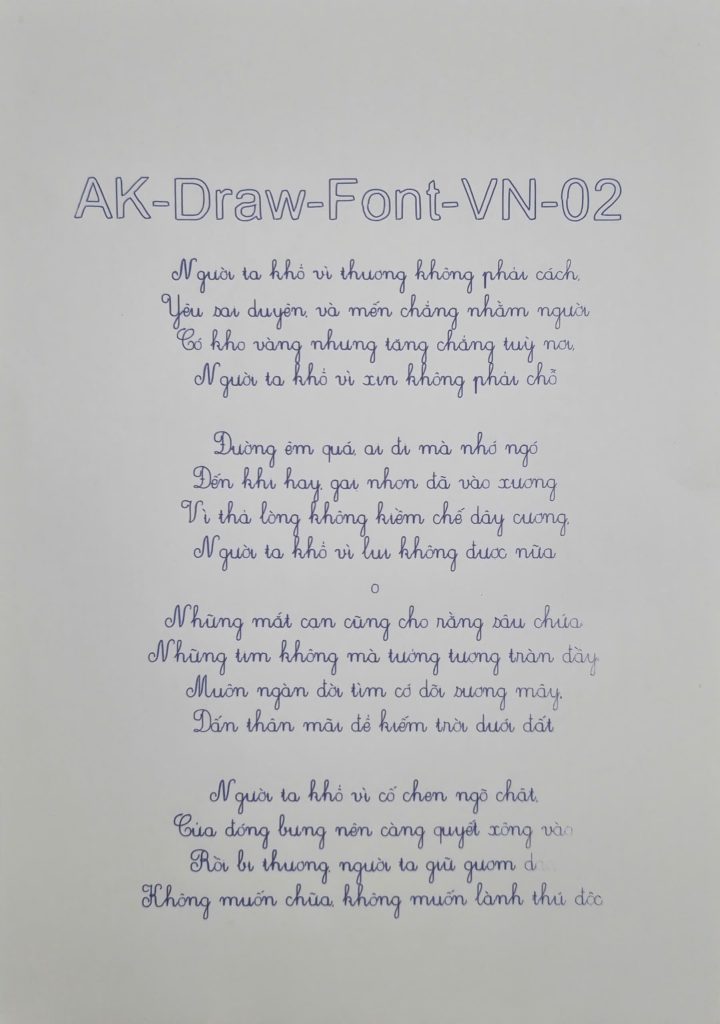 AK-Draw-Font-VN-02
Người ta khổ vì thương không phải cách,
Yêu sai duyên, và mến chẳng nhằm người
Có kho vàng nhưng tăng chẳng tuỳ nơi,
Người ta khổ vì xin không phải chỗ
Đường êm quá, ai đi mà nhớ ngó
Đến khi hay, gai nhọn đã vào xương
Vì thả lòng không kiềm chế dây cương,
Người ta khổ vì lui không được nữa
o
Những mắt cạn cũng cho rằng sâu chứa
Những tim không mà tưởng tượng tràn đầy
Muôn ngàn đời tìm cớ dõi sương mây,
Dấn thân mãi để kiếm trời dưới đất
Người ta khổ vì cố chen ngõ chật,
Cửa đóng bưng nên càng quyết xông vào
Rồi bị thương, người ta giữ gươm
Không muốn chữa, không muốn lành thú độc